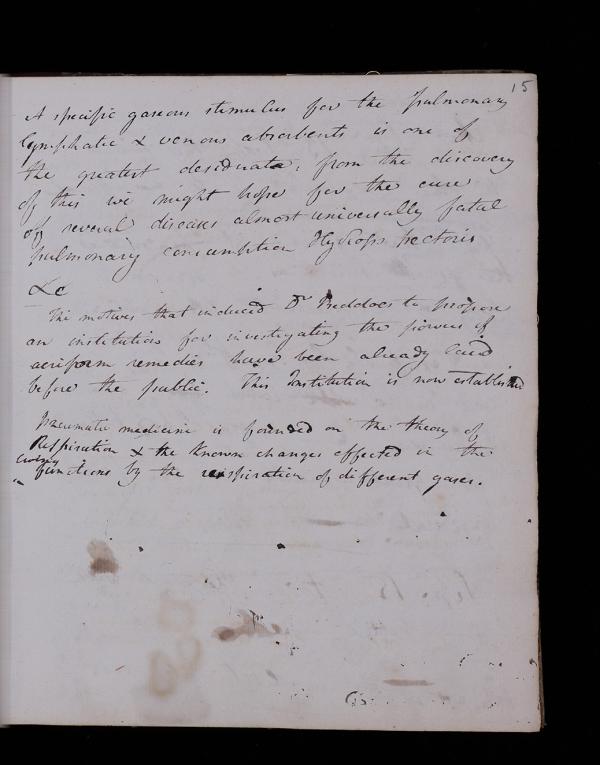 15
A specific gaseous stimulus for the pulmonary
lymphatic & venous absorbents is one of
the greatest desiderata, from the discovery
of this we might hope for the cure
of several diseases almost universally fatal
pulmonary consumption Hydrops pectoris
&c
The motives that induced Dr Beddoes to propose
an institution for investigating the powers of
aeriform remedies have been already laid
before the public. This Institution is now established
Pneumatic medicine is founded on the theory of
Respiration & the known changes effected in the
living
functions by the respiration of different gases.